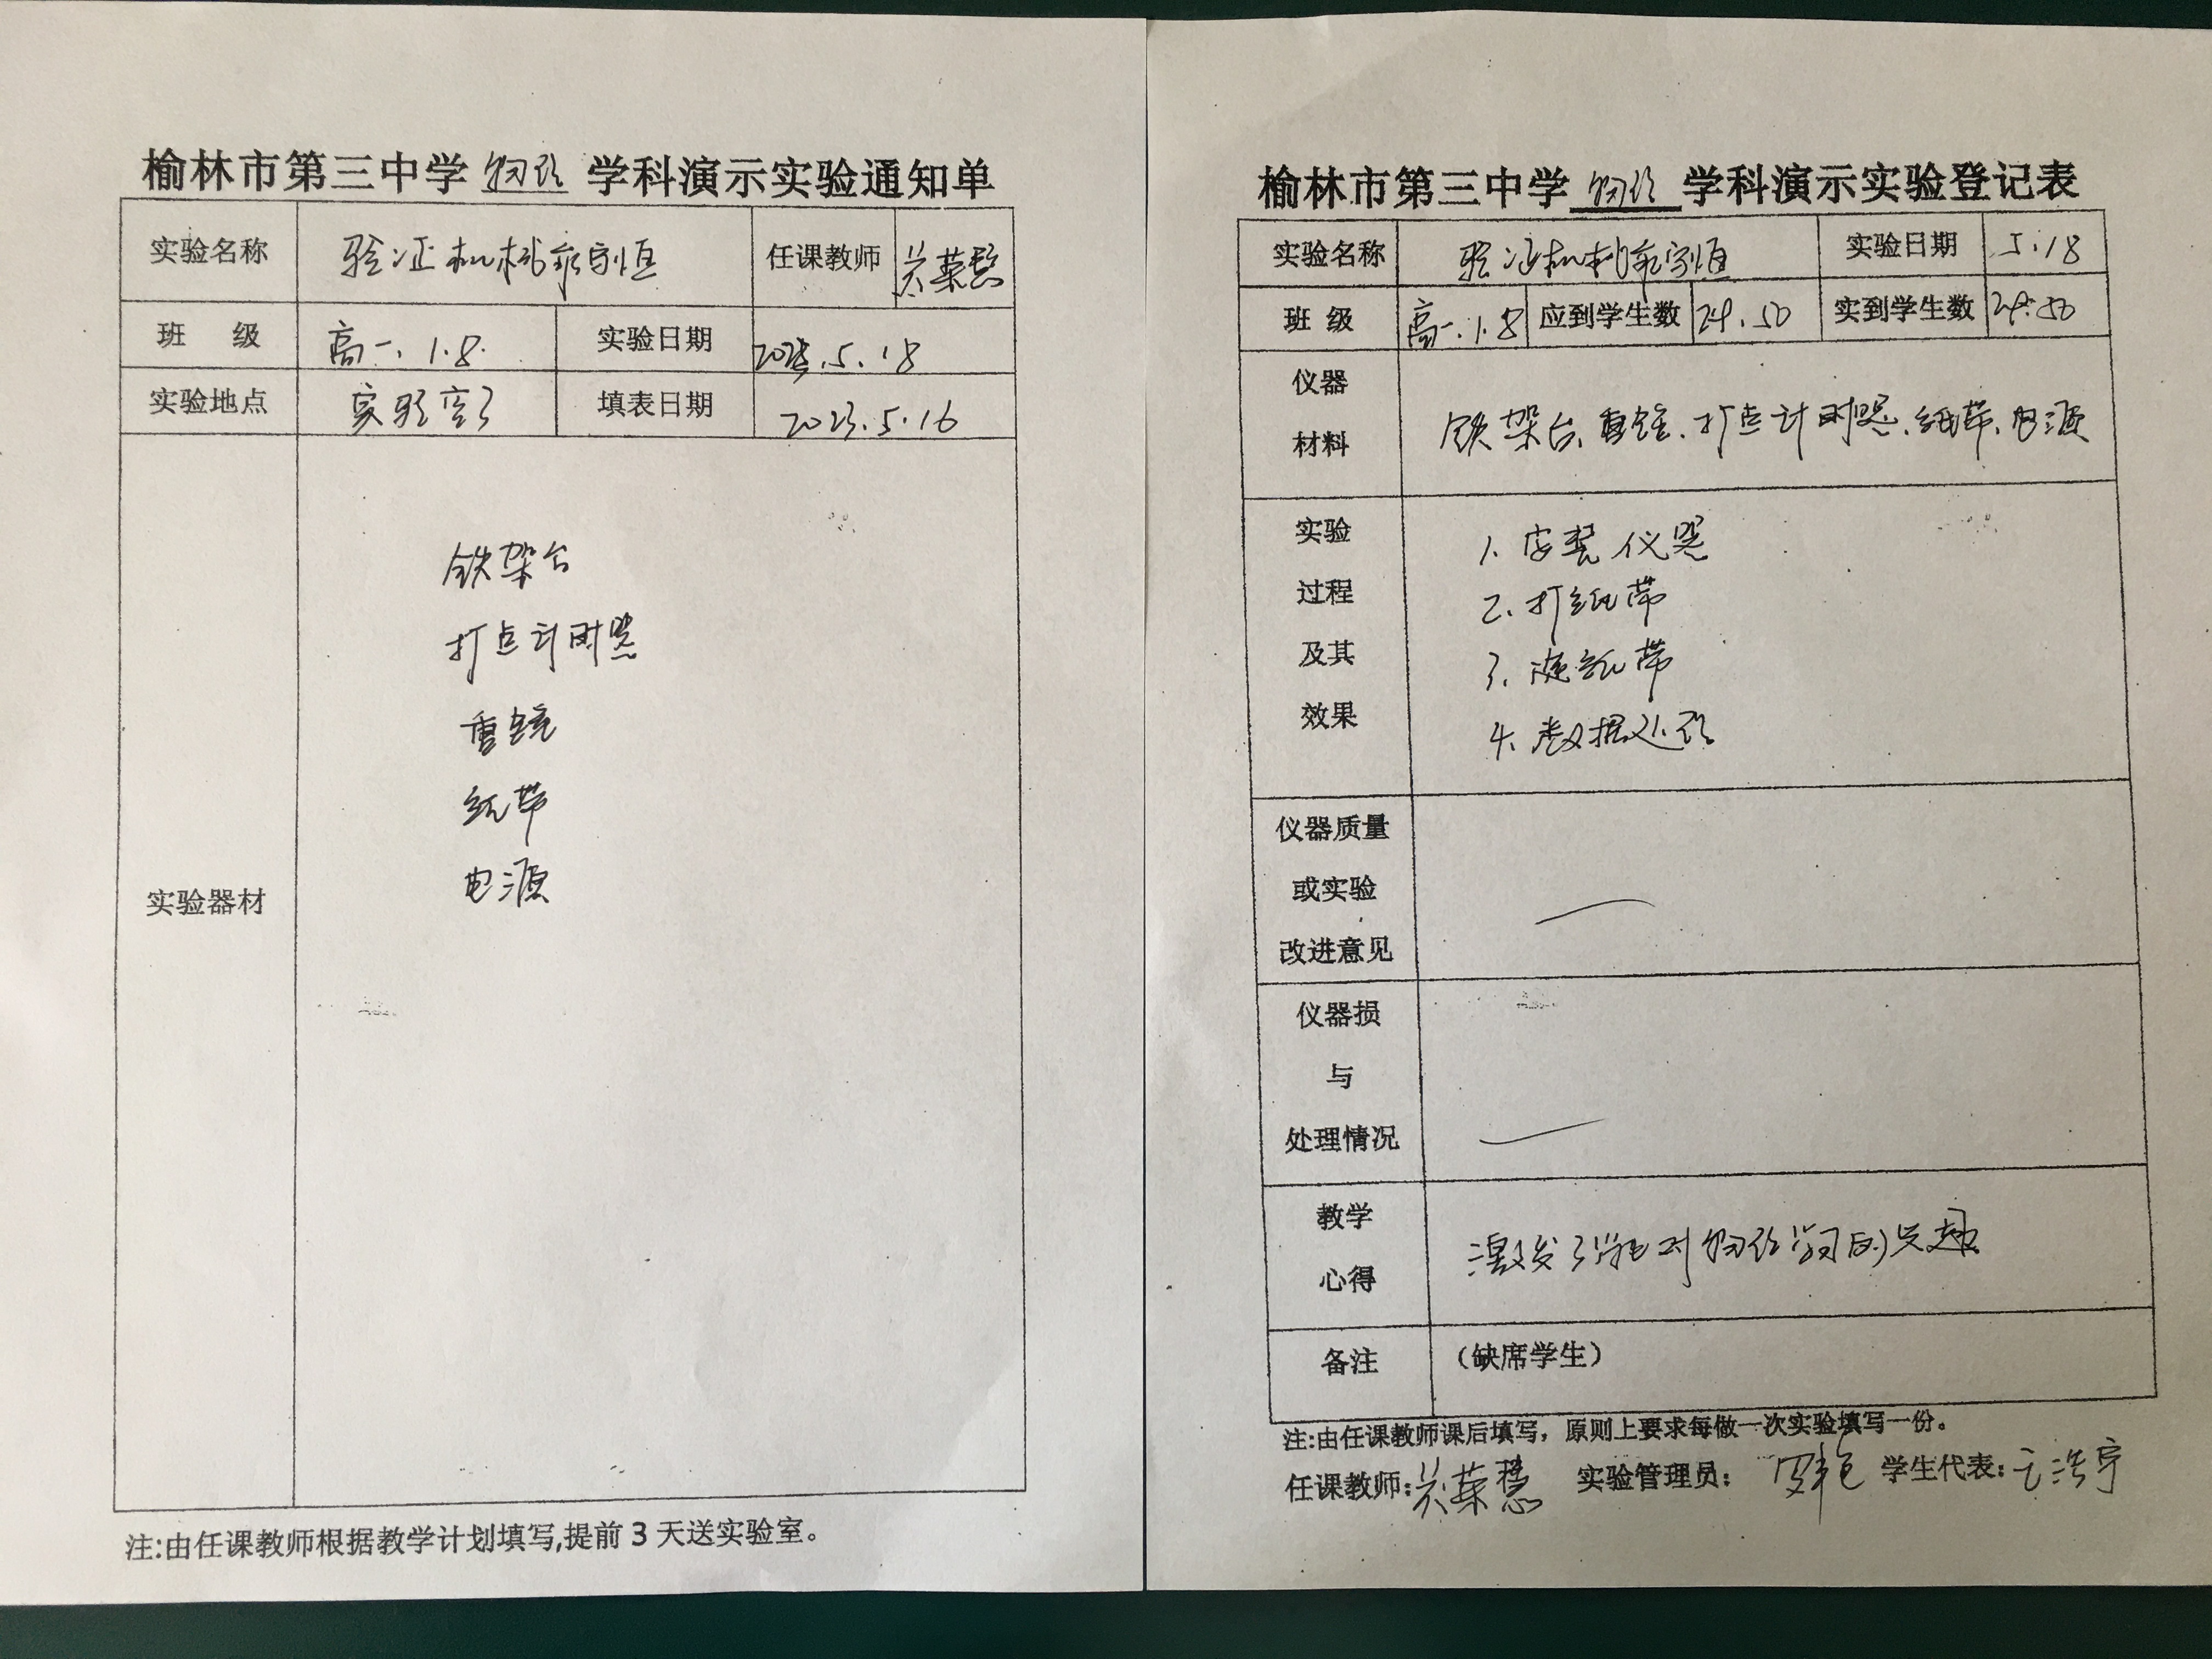 榆林市第三中学 物理 学科演示实验通知单
实验名称 验证机械能守恒 任课教师 兰荣慧
班 级 高一.1.8. 实验日期 2023.5.18
实验地点 实验室3 填表日期 2023.5.16
实验器材
铁架台
打点计时器
重锤
纸带
电源
注:由任课教师根据教学计划填写,提前3天送实验室。
榆林市第三中学 物理 学科演示实验登记表
实验名称 验证机械能守恒 实验日期 5.18
班 级 高一.1.8 应到学生数 24.50 实到学生数 24.50
仪器
材料
铁架台、重锤、打点计时器、纸带、电源
实验
过程
及其
效果
1. 安装仪器
2. 打纸带
3. 选纸带
4. 数据处理
仪器质量
或实验
改进意见
仪器损
与
处理情况
教学
心得
激发了学生对物理学习的兴趣
备注 (缺席学生)
注:由任课教师课后填写,原则上要求每做一次实验填写一份。
任课教师:兰荣慧 实验管理员: 学生代表: